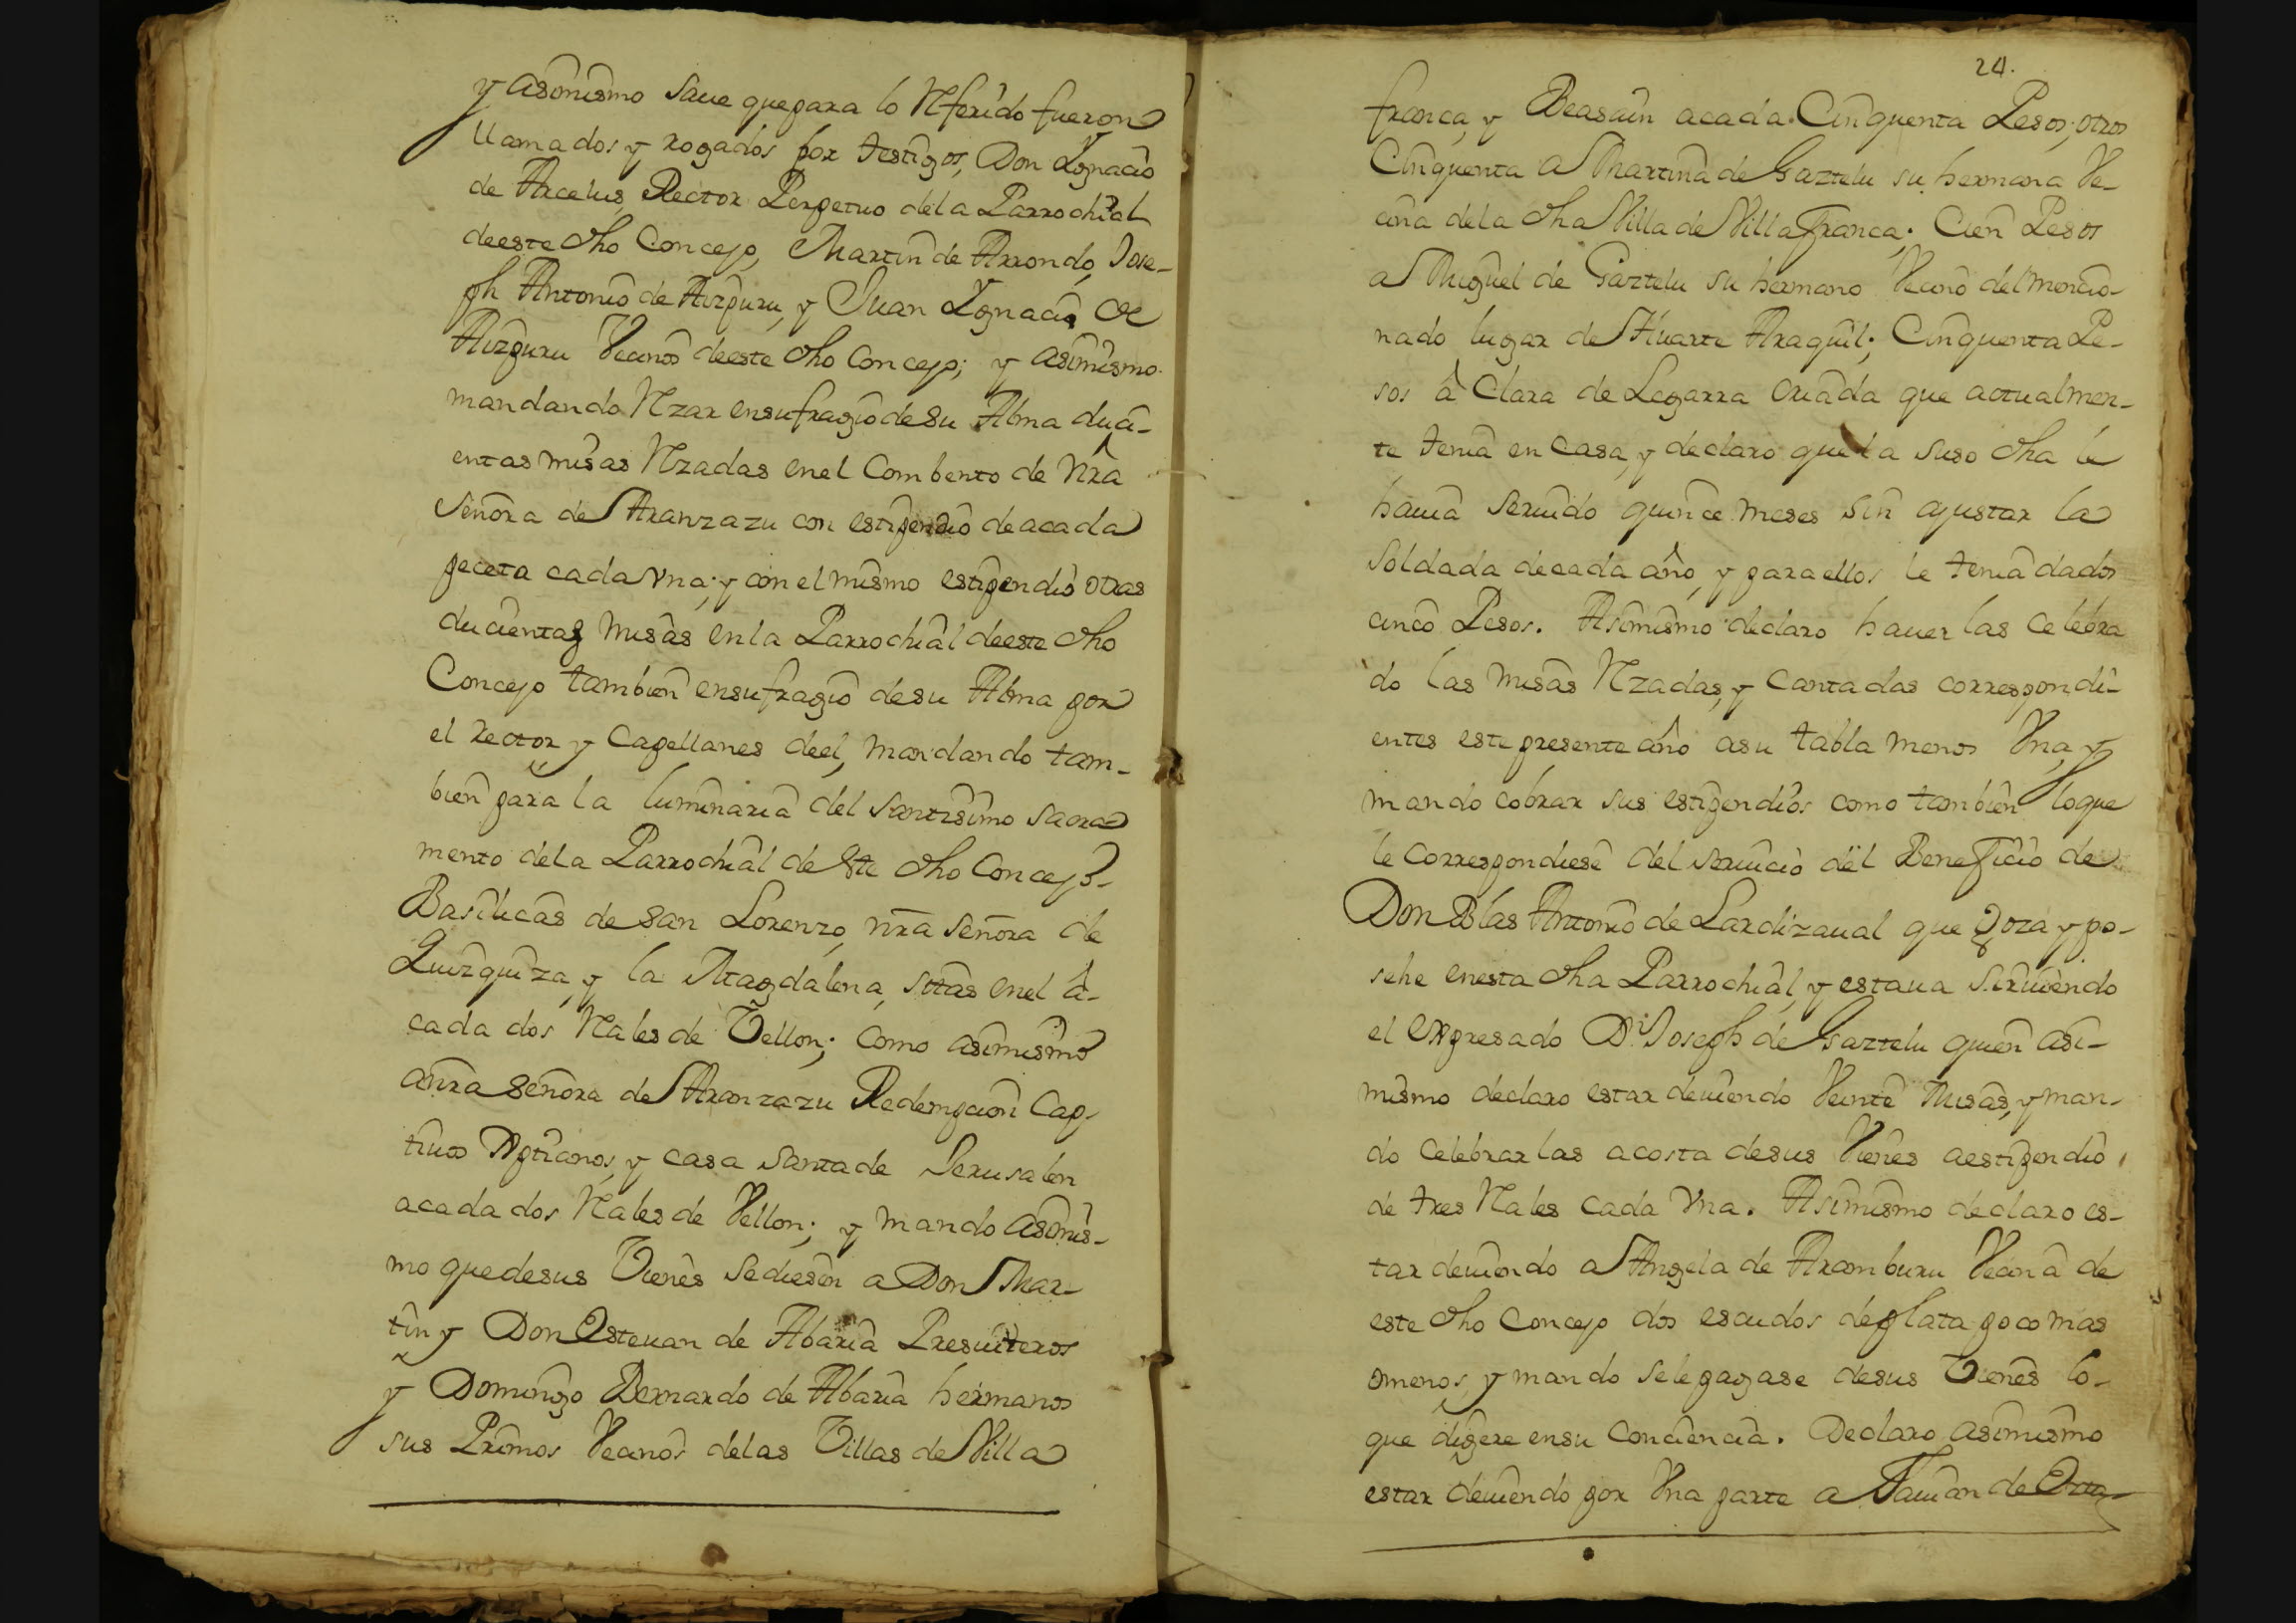 y asimismo saue que para lo Referido fueron
llamados y rogados por testigos, Don Ygnacio
de Arcelus, Rector Perpetuo de la Parrochial
de este dho Concejo, Martin de Arrondo, Jose-
ph Antonio de Aizpuru, y Juan Ygnacio de
Aizpuru Vecinos de este dho Concejo; y asimismo
mandando Rezar en sufragio de su Alma duci-
entas misas Rezadas en el Combento de Nra
Señora de Aranzazu con estipendio de a cada
peceta cada vna; y con el mismo estipendio otras
ducientas misas en la Parrochial de este dho
Concejo tambien en sufragio de su Alma por
el Rector y Capellanes de el, mandando tam-
bien para la luminaria del Santisimo Sacra
mento de la Parrochial de este dho Concejo-
Basilicas de San Lorenzo, nra Señora de
Quizquiza, y la Magdalena, sitas en el â-
cada dos Rales de Vellon; como asimismo
a nra Señora de Aranzazu Redempcion Cap-
tiuos Xptianos, y casa Santa de Jerusalen
a cada dos Rales de Vellon; y mando asimis-
mo que de sus Vienes se diesen a Don Mar-
tin y Don Esteuan de Abaria Presuiteros
y Domingo Bernardo de Abaria hermanos
sus Primos Vecinos de las Villas de Villa
24.
franca, y Beasain a cada Cinquenta Pesos; otros
Cinquenta a Martina de Gaztelu su hermana Ve-
cina de la dha Villa de Villafranca; Cien Pesos
a Miguel de Gaztelu su hermano Vecino del mencio-
nado lugar de Huarte Araquil; Cinquenta Pe-
sos â Clara de Legarra criada que actualmen-
te tenia en casa, y declaro que la suso dha le
hauia seruido quince meses sin ajustar la
soldada de cada año, y para ellos le tenia dados
cinco Pesos. Asimismo declaro hauer las celebra
do las misas Rezadas, y Cantadas correspondi-
entes este presente año a su tabla menos Vna, y
mando cobrar sus estipendios como tambien lo que
le correspondiese del seruicio del Beneficio de
Don Blas Antonio de Lardizaual que goza y po-
sehe en esta dha Parrochial, y estaua siruiendo
el expresado Dn Joseph de Gaztelu quien asi-
mismo declaro estar deuiendo Veinte Misas, y man-
do celebrarlas a costa de sus Vienes a estipendio
de tres Rales cada Vna. Asimismo declaro es-
tar deuiendo a Angela de Aramburu Vecina de
este dho Concejo dos escudos de plata poco mas
o menos, y mando se le pagase de sus Vienes lo-
que dijere en su Conciencia. Declaro asimismo
estar deuiendo por Vna parte a